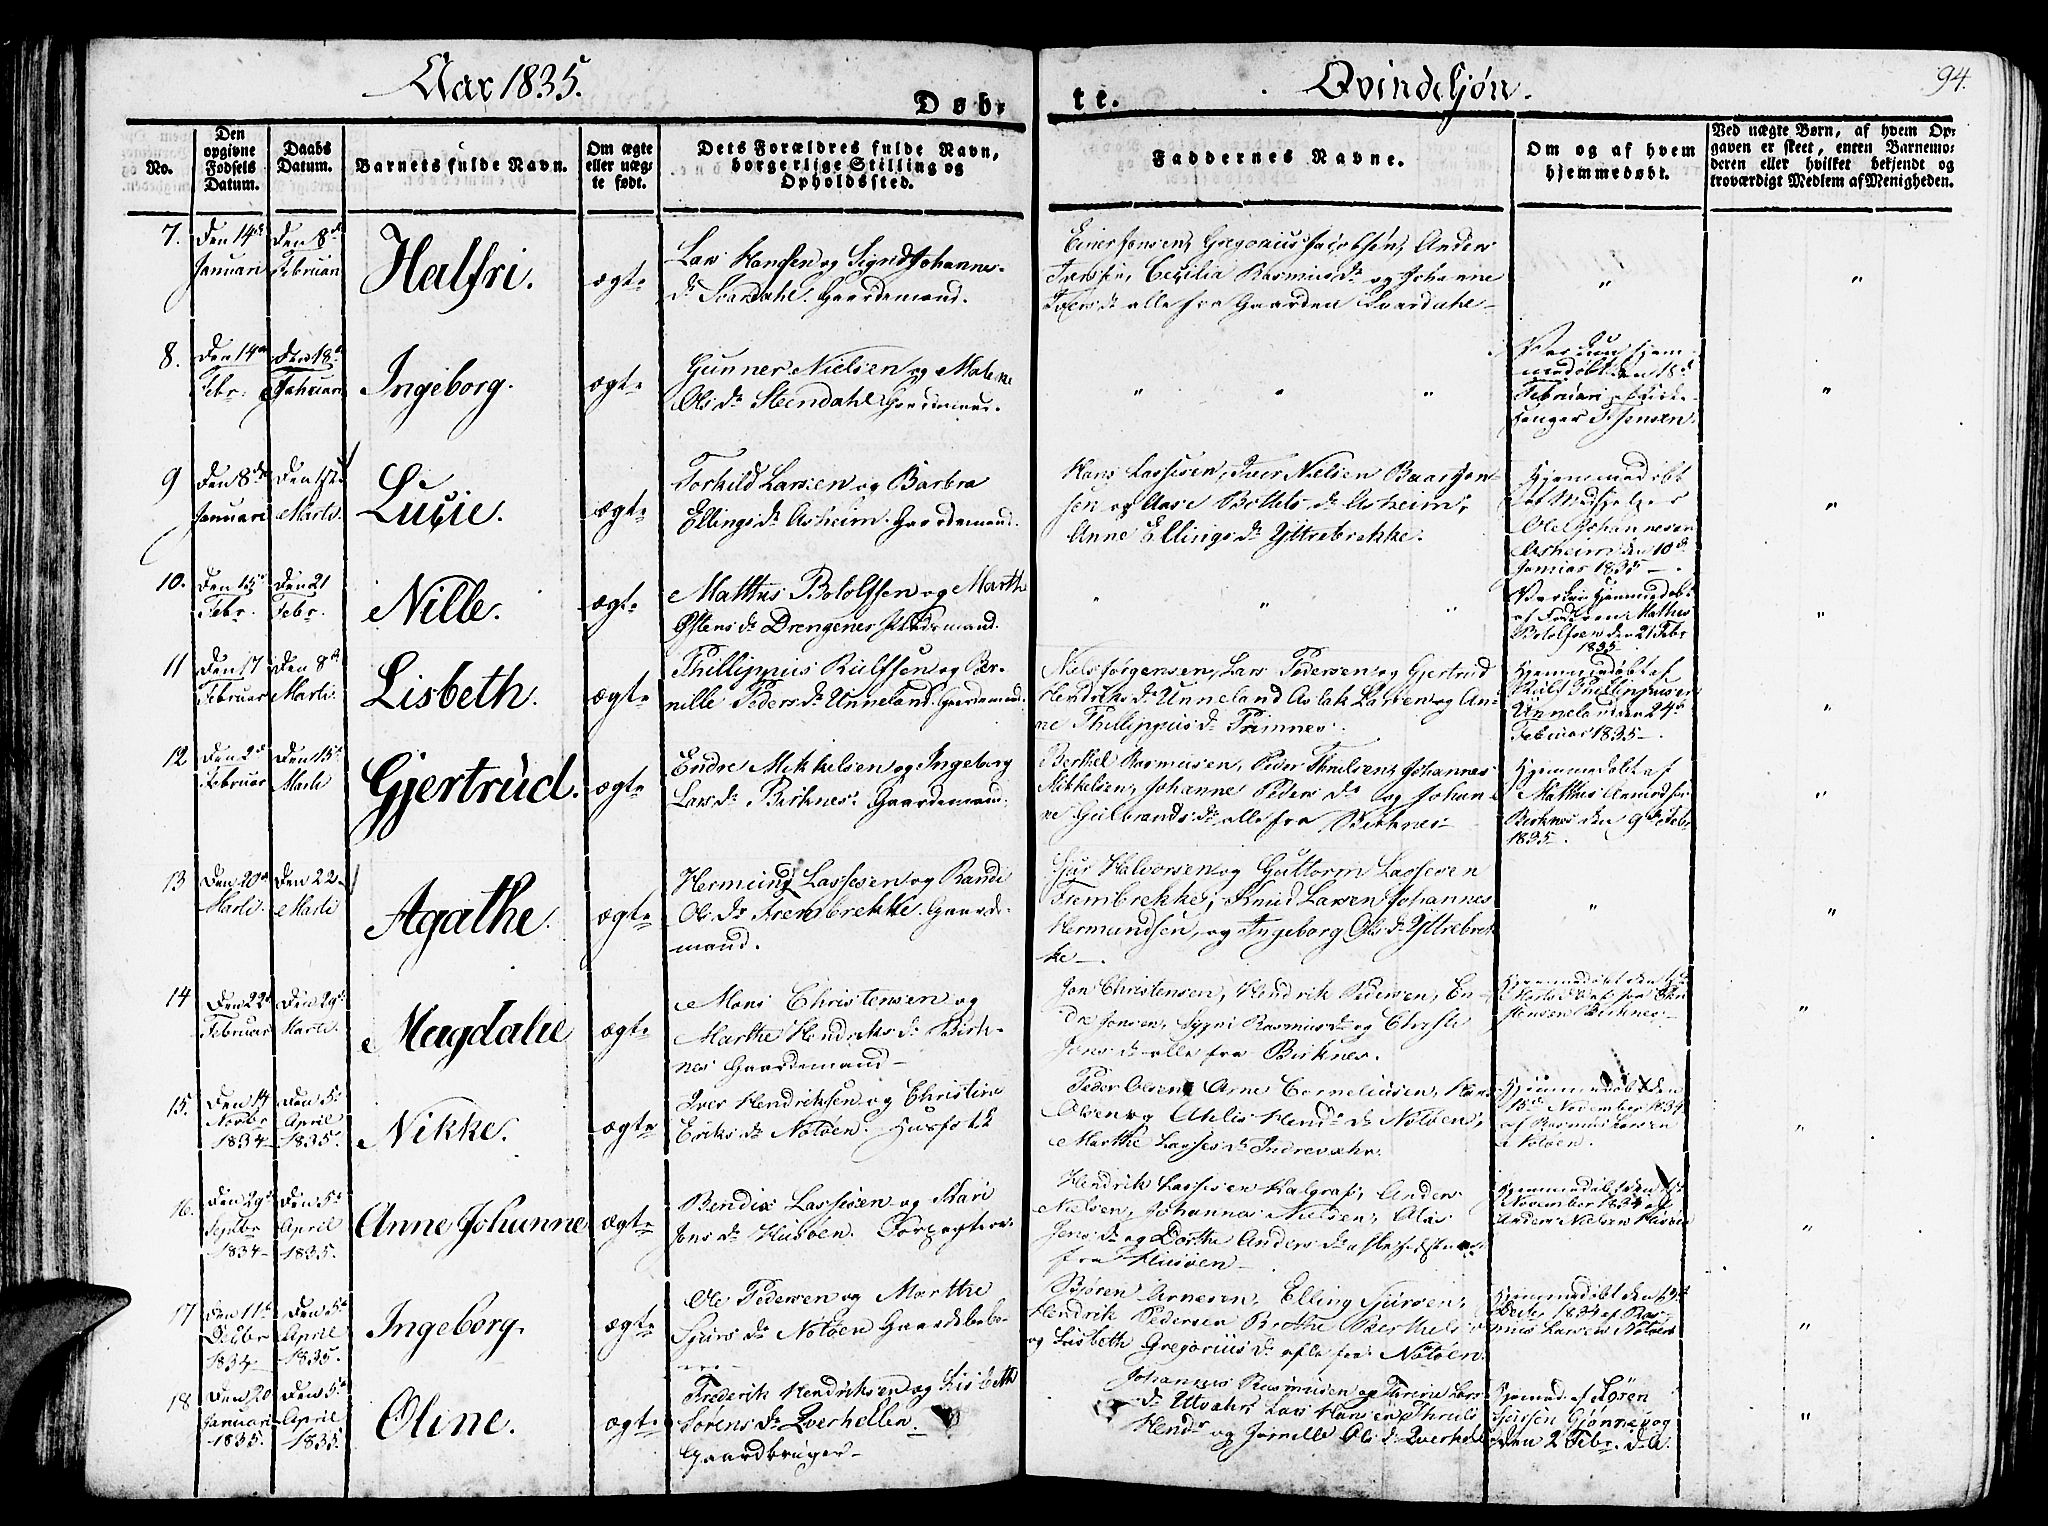 Aar 1835.
Døb-
te.
Qvindekjøn.
94.
No.
Den opgivne Fødsels Datum.
Daabs Datum.
Barnets fulde Navn.
Om ægte eller uægte født.
Dets Forældres fulde Navn, borgerlige Stilling og Opholdssted.
Faddernes Navne.
Om og af hvem hjemmedøbt.
Ved uægte Børn, af hvem Opgaven er skeet, enten Barnemoderen eller hvilket bekjendt og troværdigt Medlem af Menigheden.
7.
Den 14de
Januari
Den 8de
Februari
Halfri.
ægte
Lars Hansen og Sigrid Johannes-
dr Svardahl. Gaardemand.
Einer Jensen, Gregorius Jacobsen, Anders
Jensen, Cecilia Rasmusdr og Johanne
Iversdr alle fra Gaarden Svardahl
8.
Den 14de
Febr.
Den 18de
Februari
Ingeborg.
ægte
Gunner Nielsen og Malene
Olsdr Stendahl Gaardemand.
Februari af Kirke-
sanger Jensen.
9
Den 8de
Januari
Den 1ste
Marti.
Lucie.
ægte
Torkild Larsen og Barbra
Ellingsdr Asheim. Gaardemand.
Hans Lassesen, Iver Nielsen Baardsen
Anne Ellingsdr Yttrebrekke.
Hjemmedøbt
Ole Johannesen
Asheim den 10de
Januar 1835
10.
Den 15de
Febr.
Den 21
Febr.
Nille.
ægte
Matthis Botolfsen og Marthe
Østensdr Drengenes Pladsmand.
af Faderen Mathis
Botolfsen den 21 Febr
1835
11
Den 17
Februar
Den 8de
Marti.
Lisbeth.
ægte
Phillippus Rulfsen og Per-
nille Pedersdr Unneland. Gaardemand.
Niels Jørgensen, Lars Pedersen og Gjertrud
Hendriksdr Unneland Aslak Larsen og An-
ne Phillippusdr Trimnes.
Hjemmedøbt af
Rulf Phillippusen
Unneland den 24de
Februar 1835
12
Den 2de
Februar
Den 15de
Marti
Gjertrud.
ægte
Endre Mikkelsen og Ingeborg
Larsdr Birknes. Gaardemand.
Berkel Rasmusen, Peder Truelsen, Johannes
Mikkelsen, Johanne Pedersdr og Johan-
ne Gulbrandsdr alle fra Birknes
Hjemmedøbt af
Mathis Amundsen
Birknes den 9de Febr
1835
13
Den 20de
Marti.
Den 22
Marti
Agathe.
ægte
Hermund Lassesen og Randi
Olsdr Frembrekke. Gaarde-
mand.
Sjur Halvorsen og Guttorm Lassesen
Frembrekke, Knud Larsen Johannes
Hermundsen, og Ingeborg Olsdr Yttrebrek
ke
14
Den 22de
Februar
Den 29de
Marti.
Magdalie
ægte
Mons Christensen og
Marthe Hendriksdr Birk-
nes Gaardemand
Jon Christensen, Hendrik Pedersen, En-
dre Jensen, Sygni Rasmusdr og Christi
Jensdr alle fra Birknes.
Jensen Birknes.
15.
Den 14
Novbr
1834
Den 5te
April
1835.
Nikke.
ægte
Iver Hendriksen og Christine
Eriksdr Notøen. Husfolk
Peder Olsen, Arne Corneliusen, Hans
Olsen og Ahlis Hendr.dr Notøen,
Marthe Lassesdr Indrevahr.
Hjemmedøbt den
15de November 1834
af Rasmus Larsen
Notøen.
16.
Den 29de
Septbr
1834
Den 5te
April
1835.
Anne Johanne
ægte
Bendix Lassesen og Kari
Jonsdr Husøen. Forpagter
Hendrik Lassesen Kalgraf, Anders
Nielsen, Johannes Nielsen, Alis
Jensdr og Dorthe Andersdr
fra Husøen
November 1834 af
Anders Nielsen Husøen
17
Den 11te
Decbr
1834
Den 5te
April
1835.
Ingeborg.
ægte
Ole Pedersen og Marthe
Sjursdr Notøen Gaardbebo-
er
Børen Arnesen, Elling Sjursen,
Hendrik Pedersen Brothe Berthels
og Lisbeth Gregoriusdr alle fra Notøen.
Decbr 1834 af Ras-
mus Larsen Notøen
18
Den 20
Januari
1835.
Den 5te
April
1835.
Oline.
ægte
Frederik Hendriksen og Lisbeth
Sørensdr Qverhellen.
Gaardbruger
Johannes Rasmusen og
dr Utvahr, Lars Hansen
Hendr og Pernille Olsdr Qverhellen
Hjemmed. af Søren
Sjursen Gjønnevog
den 2 Febr. d.A.